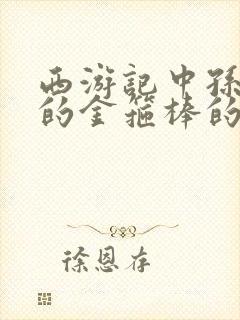 西游记中孙
的金箍棒的
徐恩存